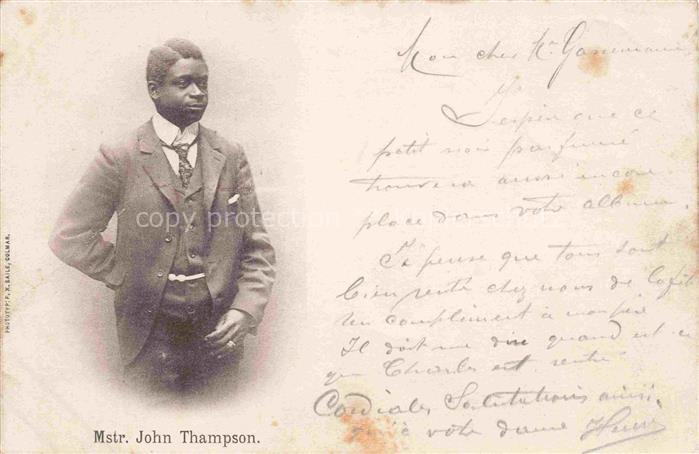 Mon cher Mr
J'espère que ce
petit noir parfumé
trouvera aussi encore
place dans votre album.
Je pense que tous sont
bien rentré chez nous de
Un compliment à
Il doit me dire quand est ce
que Charles est rentré
Cordiales Salutations ainsi
qu'à votre dame Henri
PHOTOTYP. F. X. SAILE, COLMAR.
Mstr. John Thampson.
copy protection